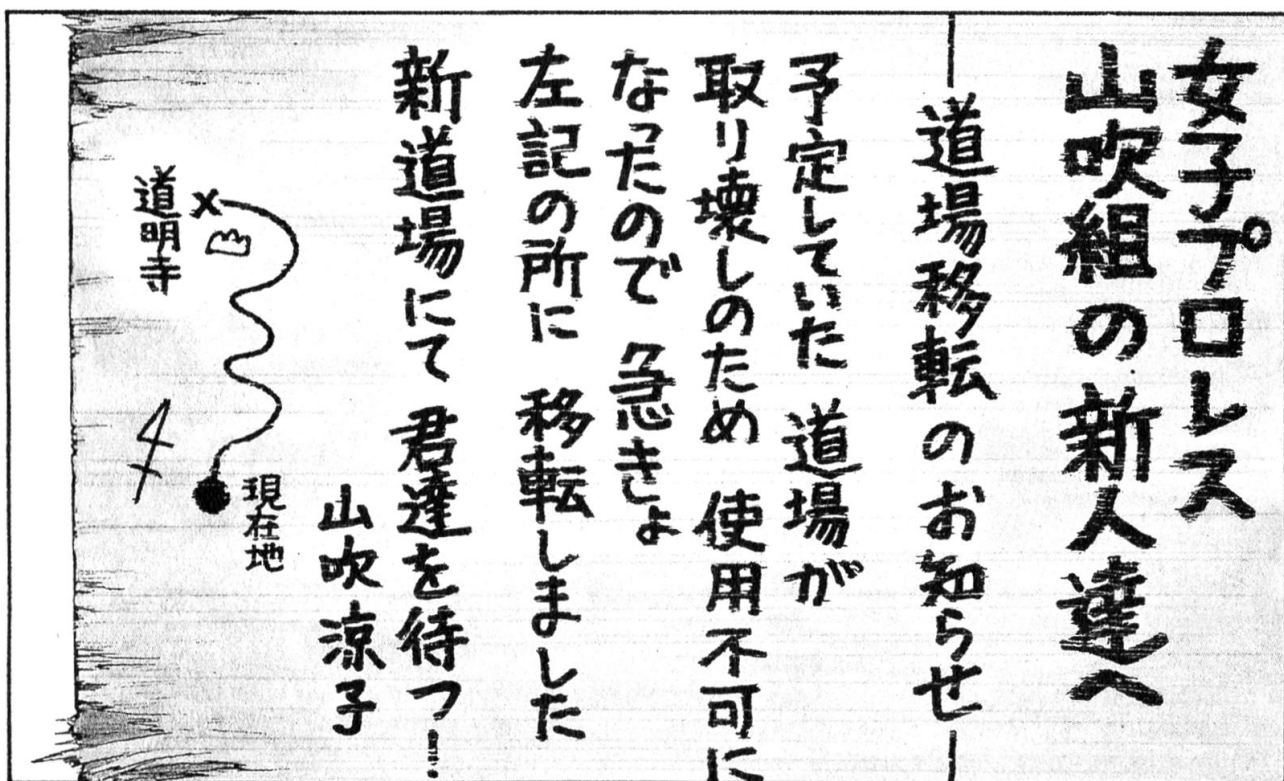 女子プロレス
山吹組の新人達へ
―道場移転のお知らせ―
予定していた 道場が
取り壊しのため 使用不可に
なったので 急きょ
左記の所に 移転しました
新道場にて 君達を待つ―
山吹涼子
現在地
道明寺